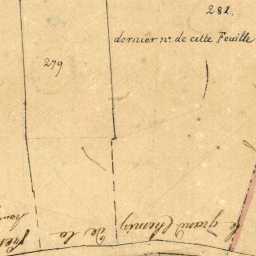 282.
dernier n.º de cette Feuille
279
le grand Chemin de la